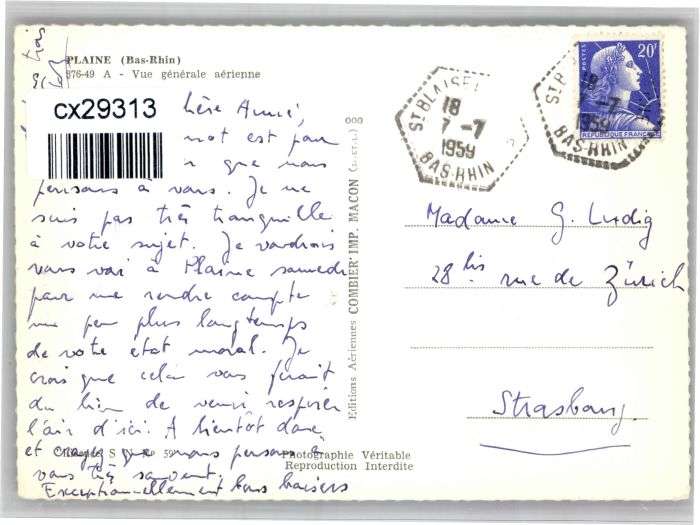 PLAINE (Bas-Rhin)
376-49 A - Vue générale aérienne
cx29313
chère Année,
mot est pour
que nous
pensons à vous. Je ne
suis pas très tranquille
à votre sujet. Je voudrais
vous voir à Plaine samedi
pour me rendre compte
un peu plus longtemps
de votre état moral. Je
crois que cela vous ferait
du bien de venir respirer
l'air d'ici. A bientôt donc
et croyez que nous pensons à
vous très souvent.
Exceptionnellement bons baisers
Editions Aériennes COMBIER IMP. MACON
Photographie Véritable
Reproduction Interdite
ST BLAISE
18
7-7
1959
BAS-RHIN
ST B
18
7-7
1959
BAS-RHIN
POSTES
20F
REPUBLIQUE FRANÇAISE
Madame G. Ludig
28 bis rue de Zürich
Strasbourg